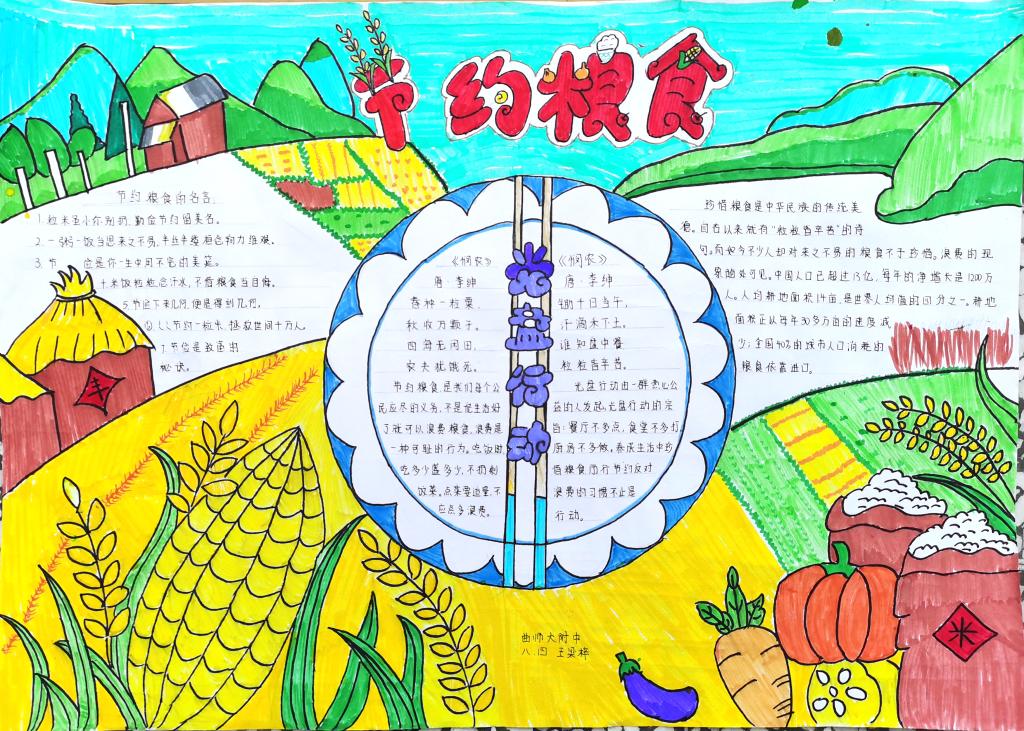 节约粮食
节约粮食的名言
1.粒米虽小你别扔,勤俭节约留美名。
2.一粥一饭当思来之不易,半丝半缕恒念物力维艰。
3.节 是你一生中用不完的美筵。
米饭粒粒念汗水,不惜粮食当自悔。
5.节伫下来几何,便是得到几何。
节约一粒米,拯救世间千万人。
7.节俭是致富的
秘诀。
《悯农》
唐·李绅
春种一粒粟,
秋收万颗子。
四海无闲田,
农夫犹饿死。
节约粮食是我们每个公
民应尽的义务,不是说生活好
了就可以浪费粮食,浪费是
一种可耻的行为。吃饭时
吃多少盛多少,不扔剩
饭菜,点菜要适量,不
应点多浪费。
光盘行动
《悯农》
唐·李绅
锄禾日当午,
汗滴禾下土。
谁知盘中餐
粒粒皆辛苦。
光盘行动由一群热心公
益的人发起,光盘行动的宗
旨:餐厅不多点,食堂不多打
厨房不多做,养成生活中珍
惜粮食厉行节约反对
浪费的习惯不止是
行动。
珍惜粮食是中华民族的传统美
德。自古以来就有“粒粒皆辛苦”的诗
句。而如今不少人却对来之不易的粮食不于珍惜。浪费的现
象随处可见。中国人口已超过13亿,每年的净增长是1200万
人。人均耕地面积1.4亩,是世界人均值的四分之一。耕地
面积正以每年30多万亩的速度减
少;全国40%的城市人口消耗的
粮食依靠进口。
丰
米
曲师大附中
八.四 王梁桦